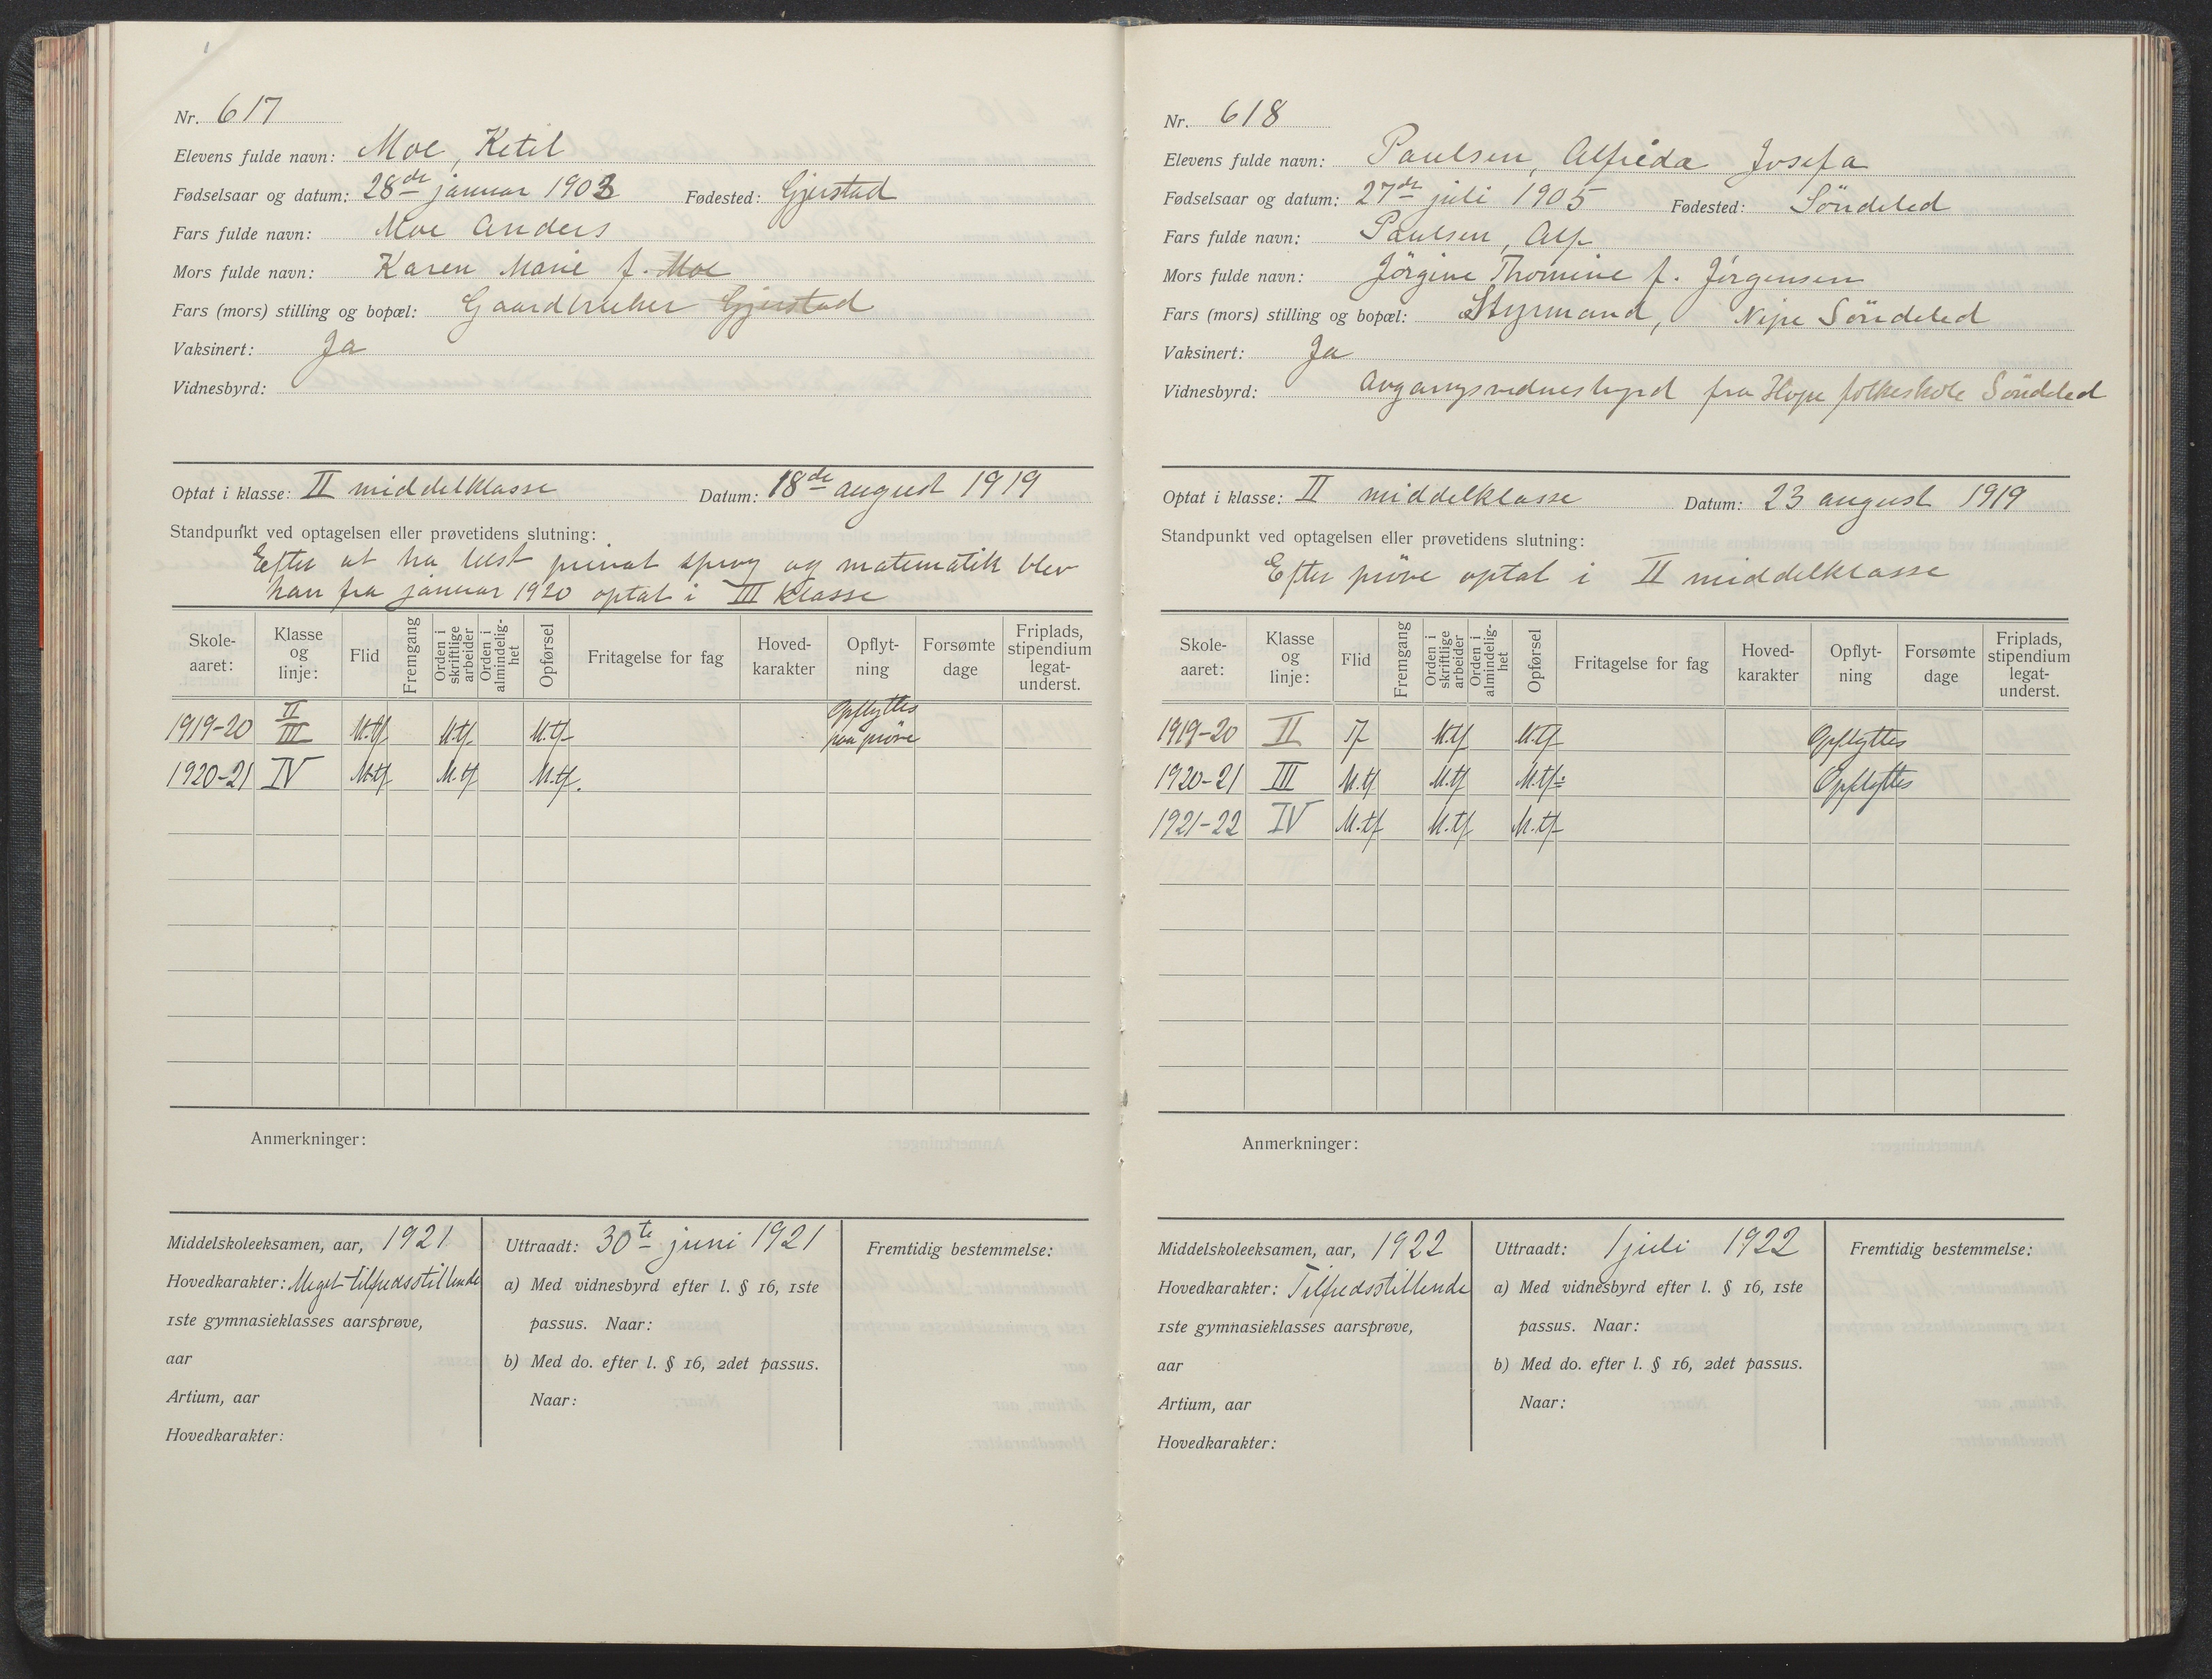 Nr. 617
Elevens fulde navn: Moe, Ketil
Fødselsaar og datum: 28de januar 1903 Fødested: Gjerstad
Fars fulde navn: Moe Anders
Mors fulde navn: Karen Marie f. Moe
Fars (mors) stilling og bopæl: Gaardbruker Gjerstad
Vaksinert: Ja
Vidnesbyrd:
Optat i klasse: II middelklasse Datum: 18de august 1919
Standpunkt ved optagelsen eller prøvetidens slutning:
Efter at ha læst privat sprog og matematik blev
han fra januar 1920 optat i III klasse
Skole-aaret: Klasse og linje: Flid Fremgang Orden i skriftlige arbeider Orden i almindelig-het Opførsel Fritagelse for fag Hoved-karakter Opflyt-ning Forsømte dage Friplads, stipendium legat-underst.
1919-20 II III M.tf M.tf. M.tf Opflyttes paa prøve
1920-21 IV M.tf M.tf M.tf.
Anmerkninger:
Middelskoleeksamen, aar, 1921 Uttraadt: 30te juni 1921 Fremtidig bestemmelse:
Hovedkarakter: Meget tilfredsstillende a) Med vidnesbyrd efter l. § 16, 1ste
1ste gymnasieklasses aarsprøve, passus. Naar:
aar b) Med do. efter l. § 16, 2det passus.
Artium, aar Naar:
Hovedkarakter:
Nr. 618
Elevens fulde navn: Paulsen, Alfrida Josefa
Fødselsaar og datum: 27de juli 1905 Fødested: Söndeled
Fars fulde navn: Paulsen, Alf
Mors fulde navn: Jörgine Thomine f. Jörgensen
Fars (mors) stilling og bopæl: Styrmand, Nipe Söndeled
Vaksinert: Ja
Vidnesbyrd: Avgangsvidnesbyrd fra Hope folkeskole Söndeled
Optat i klasse: II middelklasse Datum: 23 august 1919
Standpunkt ved optagelsen eller prøvetidens slutning:
Efter pröve optat i II middelklasse
Skole-aaret: Klasse og linje: Flid Fremgang Orden i skriftlige arbeider Orden i almindelig-het Opførsel Fritagelse for fag Hoved-karakter Opflyt-ning Forsømte dage Friplads, stipendium legat-underst.
1919-20 II Tf M.tf M.tf Opflyttes
1920-21 III M.tf M.tf M.tf: Opflyttes
1921-22 IV M.tf M.tf M.tf
Anmerkninger:
Middelskoleeksamen, aar, 1922 Uttraadt: 1 juli 1922 Fremtidig bestemmelse:
Hovedkarakter: Tilfredsstillende a) Med vidnesbyrd efter l. § 16, 1ste
1ste gymnasieklasses aarsprøve, passus. Naar:
aar b) Med do. efter l. § 16, 2det passus.
Artium, aar Naar:
Hovedkarakter: